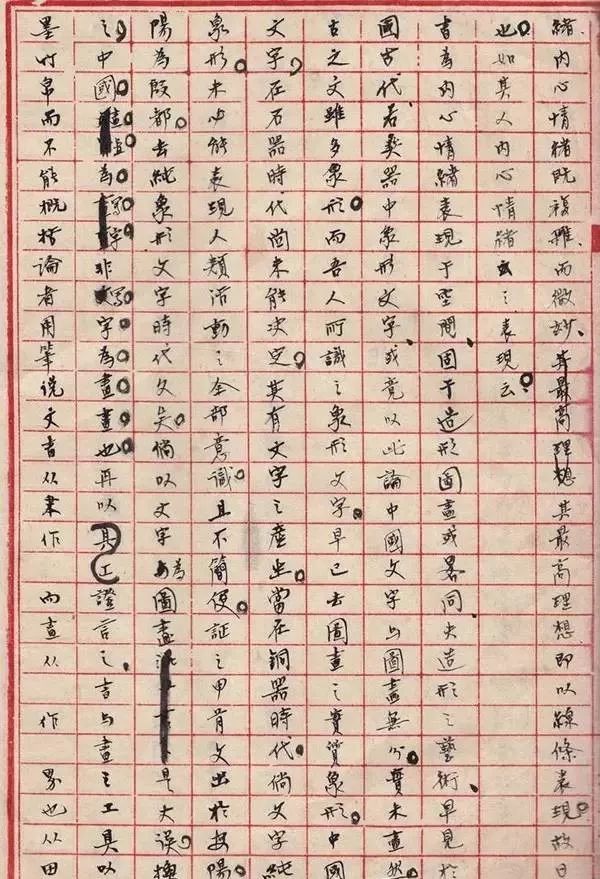 緒内心情緒既複雜而微妙、其最高理想其最高理想即以線條表現。故曰
也。如其人内心情緒之表現云。
書為内心情緒表現于空間、固于造形圖畫或畧同、夫造形之藝術、早見於
國古代、若彝器中象形文字、或竟以此論中國文字与圖畫無分。實未盡然。
古之文雖多象形。而吾人所識之象形文字。早已去圖畫之實質象形。中國
文字、在石器時代尚未能决定。其有文字之產生。當在銅器時代。倘文字純
象形。未必能表現人類活動之全部意識。且不簡便。証之甲骨文出於安陽。
陽為殷都。去純象形文字時代久矣。倘以文字為圖畫是大誤。摭
之中國。為寫字非寫字為畫畫也。再以其工證言之、書与畫之工具以
墨竹帛而不能概括論者用筆説文書从聿作 而畫从 作 界也从田